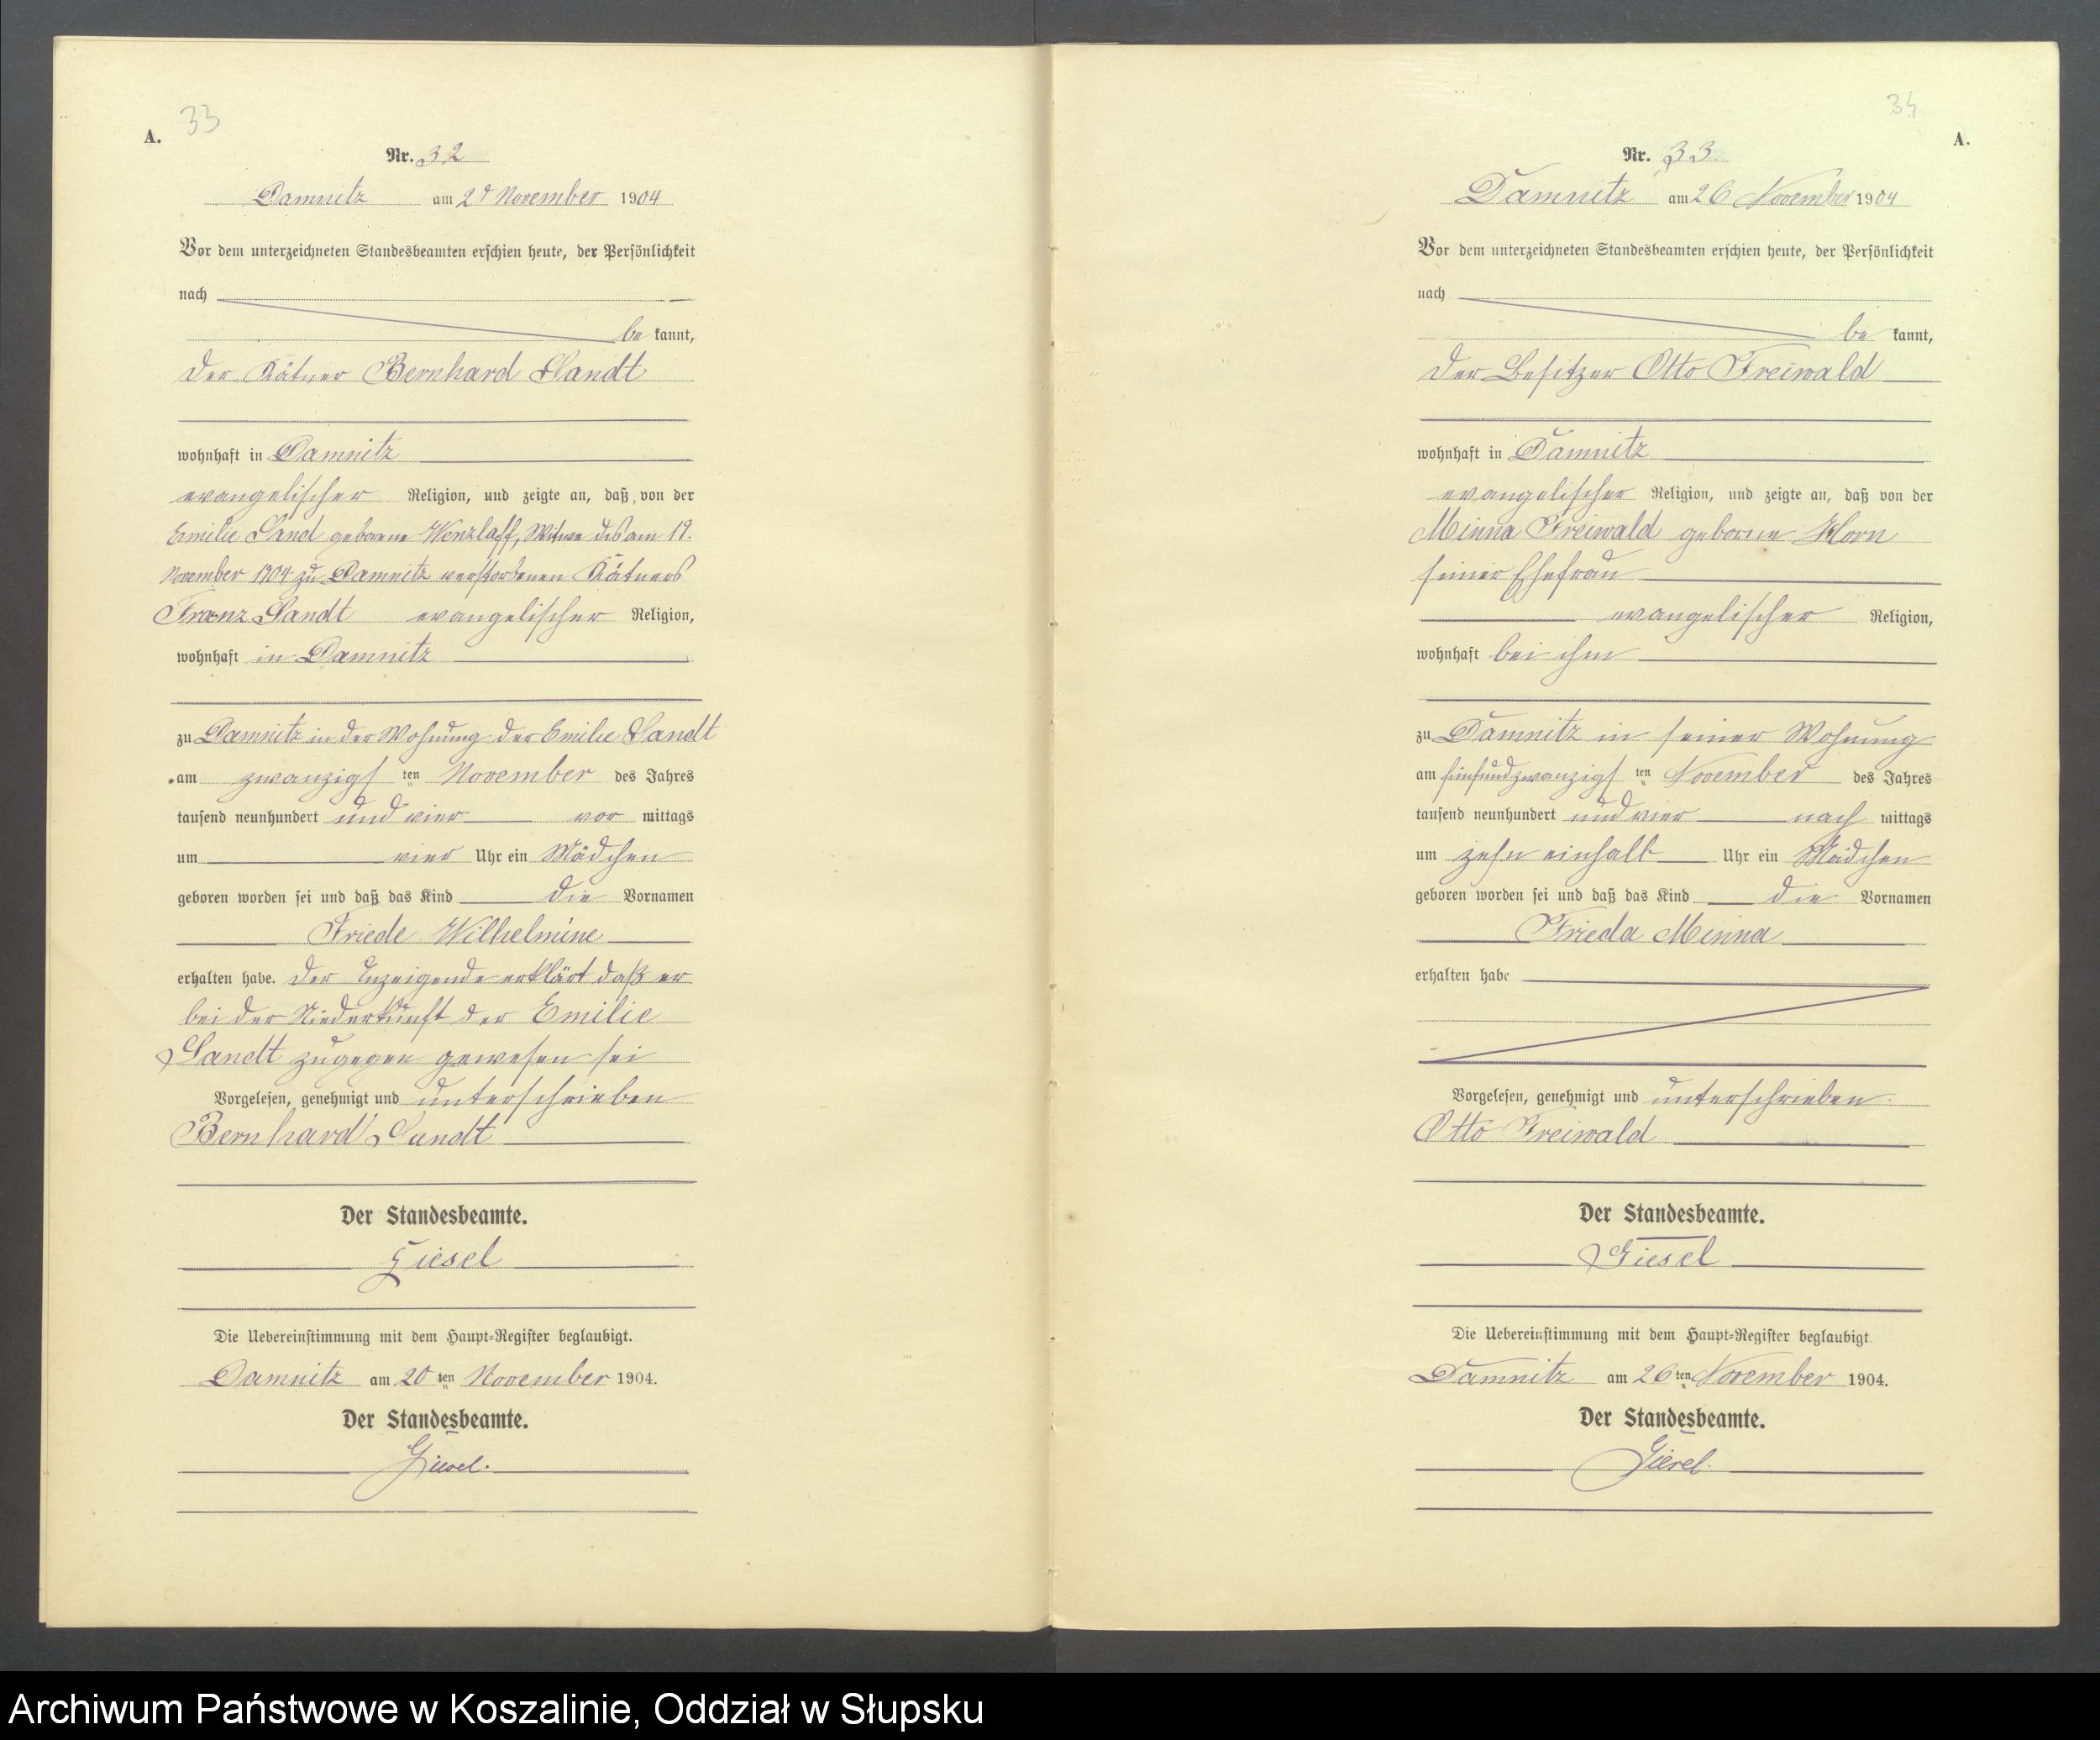 33
A.
Nr. 32
Damnitz am 20 November 1904
Vor dem unterzeichneten Standesbeamten erschien heute, der Persönlichkeit
nach
be kannt,
der Kätner Bernhard Sandt
wohnhaft in Damnitz
evangelischer Religion, und zeigte an, daß von der
Emilie Sand geborene Wenzlaff, Witwe des am 19.
November 1904 zu Damnitz verstorbenen Kätners
Franz Sandt evangelischer Religion,
wohnhaft in Damnitz
zu Damnitz in der Wohnung der Emilie Sandt
am zwanzigs ten November des Jahres
tausend neunhundert und vier vor mittags
um vier Uhr ein Mädchen
geboren worden sei und daß das Kind die Vornamen
Friede Wilhelmine
erhalten habe. Der Anzeigende erklärt daß er
bei der Niederkunft der Emilie
Sandt zugegen gewesen sei
Vorgelesen, genehmigt und unterschrieben
Bernhard Sandt
Der Standesbeamte.
Giesel
Die Uebereinstimmung mit dem Haupt-Register beglaubigt.
Damnitz am 20 ten November 1904.
Der Standesbeamte.
Giesel.
34
A.
Nr. 33.
Damnitz am 26 November 1904
Vor dem unterzeichneten Standesbeamten erschien heute, der Persönlichkeit
nach
be kannt,
der Besitzer Otto Freiwald
wohnhaft in Damnitz
evangelischer Religion, und zeigte an, daß von der
Minna Freiwald geborne Horn
seiner Ehefrau
evangelischer Religion,
wohnhaft bei ihm
zu Damnitz in seiner Wohnung
am fünfundzwanzigs ten November des Jahres
tausend neunhundert und vier nach mittags
um zehn einhalb Uhr ein Mädchen
geboren worden sei und daß das Kind die Vornamen
Frieda Minna
erhalten habe
Vorgelesen, genehmigt und unterschrieben
Otto Freiwald
Der Standesbeamte.
Giesel
Die Uebereinstimmung mit dem Haupt-Register beglaubigt.
Damnitz am 26 ten November 1904.
Der Standesbeamte.
Giesel.
Archiwum Państwowe w Koszalinie, Oddział w Słupsku